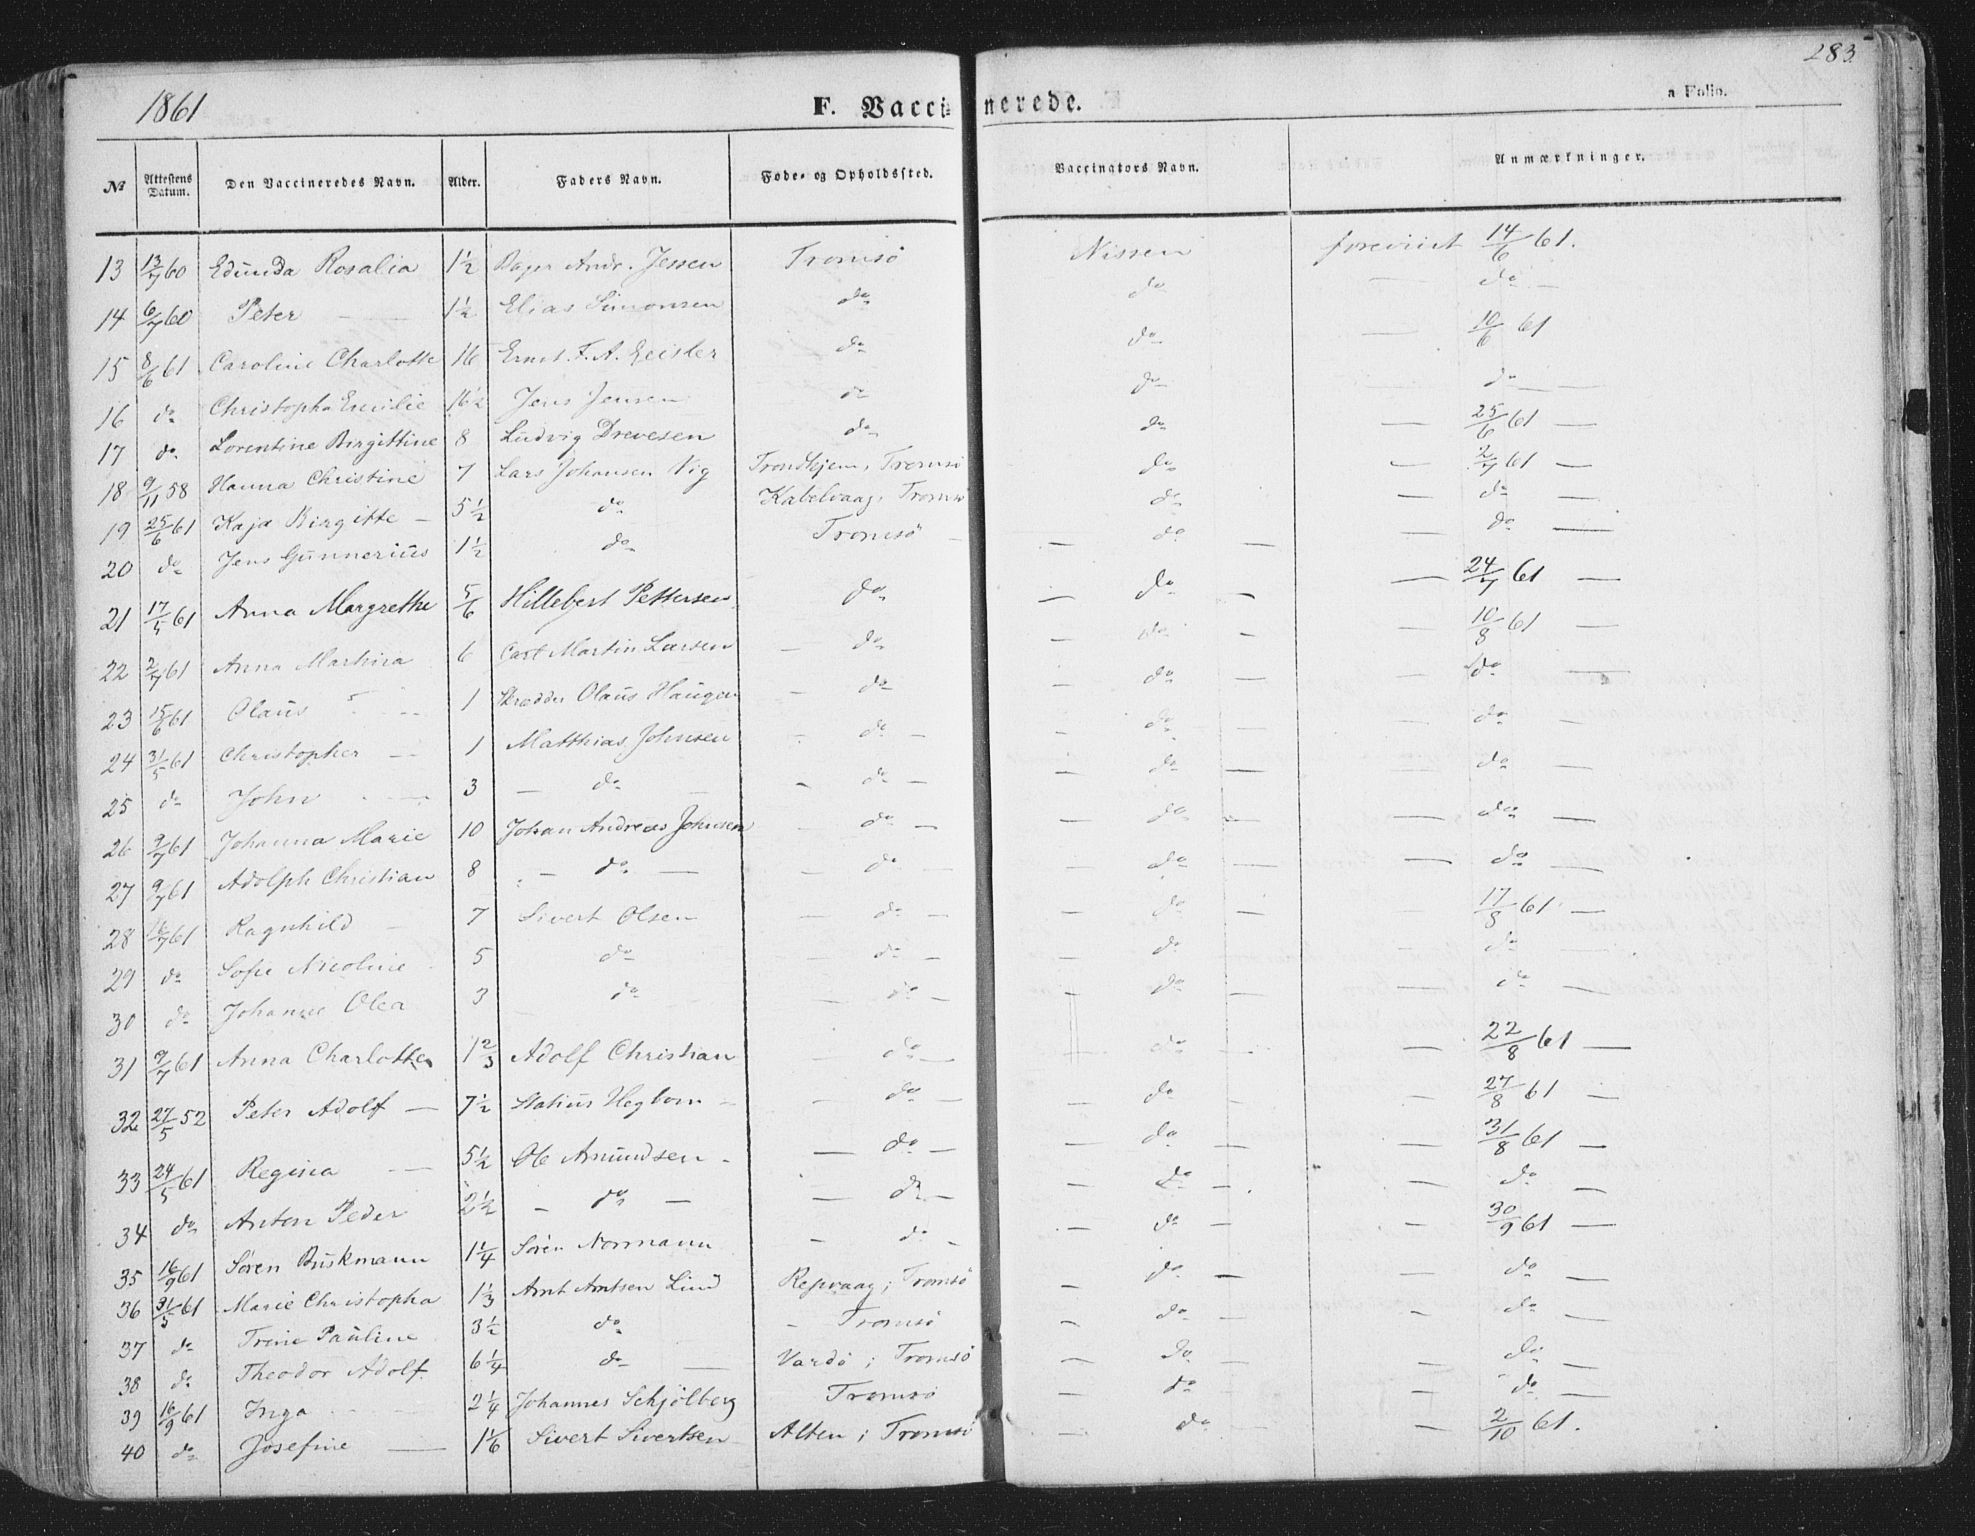 283.
1861 F. Vaccinerede. a Folio.
№ Attestens Datum. Den Vaccineredes Navn. Alder. Faders Navn. Føde- og Opholdssted. Vaccinators Navn. Anmærkninger.
13 13/7 60 Edunda Rosalia 1½ Andr. Jessen Tromsö Nissen foreviist 14/6 61.
14 6/7 60 Peter — 1½ Elias Simonsen do do — do —
15 8/6 61 Caroline Charlotte 16 Ernst F. A. Geisler do do — 10/6 61
16 do Christopha Emilie 16½ Jens Jensen do do — do —
17 do Lorentine Birgittine 8 Ludvig Drevesen do do — 25/6 61 —
18 9/11 58 Hanna Christine 7 Lars Johansen Vig Trondhjem, Tromsö do — 2/7 61 —
19 25/6 61 Kaja Birgitte — 5½ do Kabelvaag, Tromsö do — do —
20 do Jens Gunnerius 1½ do Tromsö — do — — do —
21 17/5 61 Anna Margrethe 5/6 Hillebert Pettersen do — do — — 24/7 61 —
22 2/7 61 Anna Martina 6 Carl Martin Larsen — do — do — — 10/8 61 —
23 15/6 61 Olaus — 1 Skrædder Olaus Haugen — do — do — — do —
24 31/5 61 Christopher — 1 Matthias Johnsen — do — — do — — do —
25 do John — 3 — do — — do — — do — — do —
26 9/7 61 Johanna Marie 10 Johan Andreas Johnsen — do — — do — — do —
27 9/7 61 Adolph Christian 8 — do — — do — — do — — do —
28 16/7 61 Ragnhild — 7 Sivert Olsen — do — — do — — 17/8 61 —
29 do Sofie Nicoline 5 do — do — — do — — do —
30 do Johanne Olea 3 do — do — — do — — do —
31 9/7 61 Anna Charlotte 1⅔ Adolf Christian — do — — do — — 22/8 61 —
32 27/5 52 Peter Adolf — 7½ Statius Hegbom — — do — — do — — 27/8 61 —
33 24/5 61 Regina — 5½ Ole Amundsen — — do — — do — — 31/8 61 —
34 do Anton Peder 2½ — do — — do — — do — — do —
35 16/9 61 Sören Buskmann 1¼ Sören Normann — do — — do — — 30/9 61 —
36 31/5 61 Marie Christopha 1⅓ Arnt Arntsen Lind Repvaag; Tromsö — do — — do —
37 do Trine Pauline 3½ do — Tromsö — do — — do —
38 do Theodor Adolf 6¼ do — Vardö; Tromsö — do — — do —
39 16/9 61 Inga — 2¼ Johannes Schjölberg Tromsö — do — — do —
40 do Josefine — 1⅙ Sivert Sivertsen Alten; Tromsö — do — — 2/10 61.